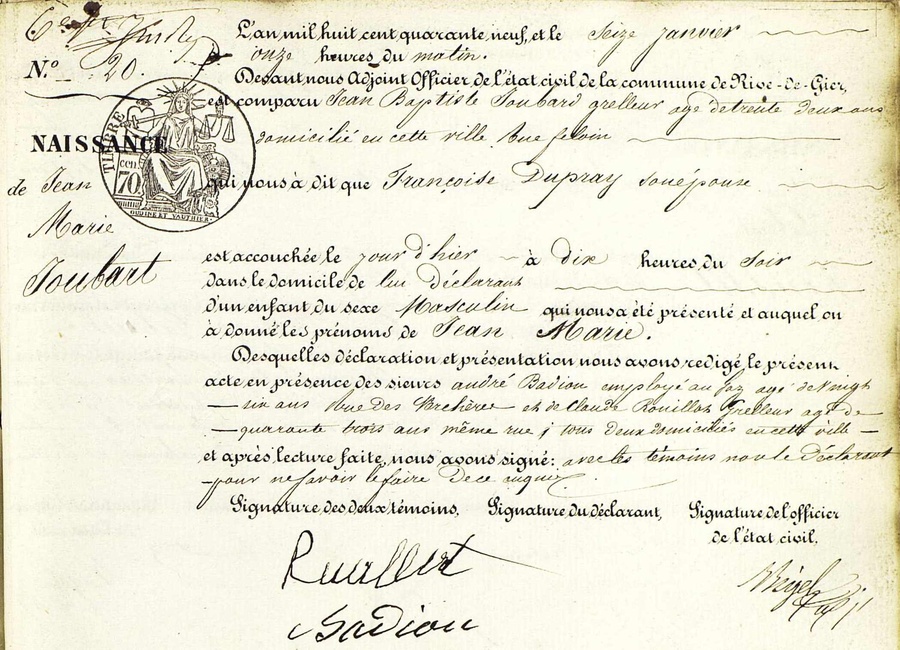 N.° 20.
NAISSANCE
de Jean
Marie
Joubart
TIMBRE
70
cen
OUDINE ET VAUTHIER
L'an mil huit cent quarante neuf, et le Seize janvier
onze heures du matin.
Devant nous Adjoint Officier de l'état civil de la commune de Rive-de-Gier,
est comparu Jean Baptiste Joubard grelleur agé de trente deux ans
domicilié en cette ville Rue
qui nous à dit que Françoise Dupray son épouse
est accouchée le jour d'hier à dix heures du Soir
dans le domicile de lui déclarant
d'un enfant du sexe Masculin qui nous a été présenté et auquel on
à donné les prénoms de Jean Marie.
Desquelles déclaration et présentation nous avons redigé le présent
acte en présence des sieurs andré Badiou employé au gaz agé de Vingt
six ans Rue des Verchères et de Claude Rouillot Grelleur agé de
quarante trois ans même rue ; tous deux domiciliés en cette ville
et après lecture faite, nous avons signé: avec les témoins non le Déclarant
pour ne savoir le faire De ce enquis
Signature des deux témoins, Signature du déclarant, Signature de l'officier
de l'état civil.
Rouillot
Badiou